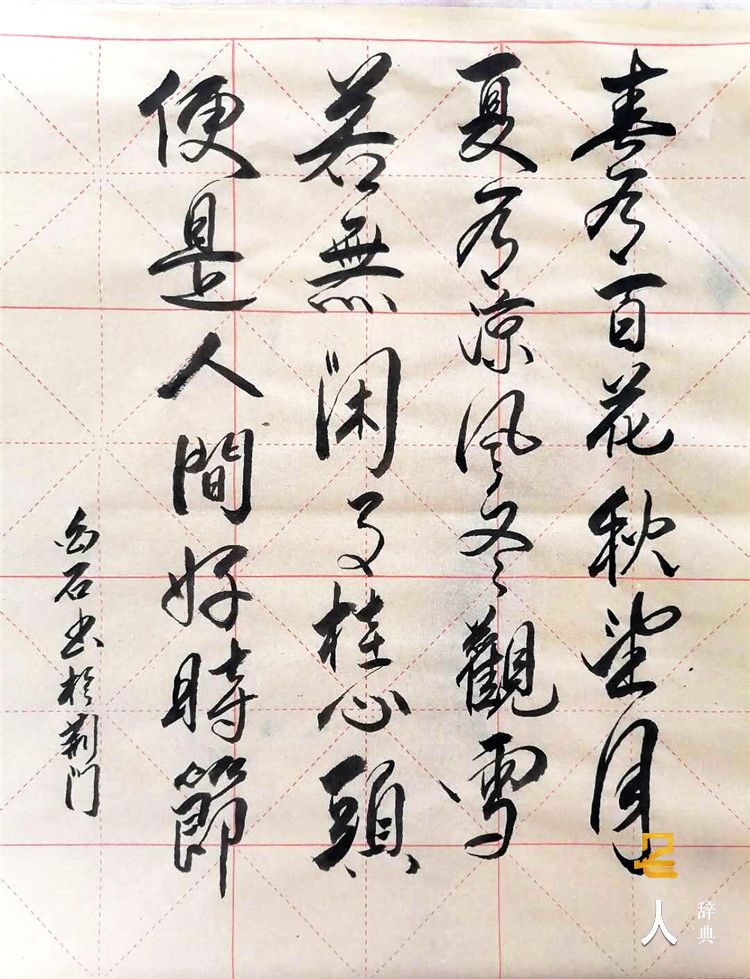 春有百花秋望月
夏有凉风冬觀雪
若無闲了桂心頭
便是人間好時節
石书於荆门
人
辞典